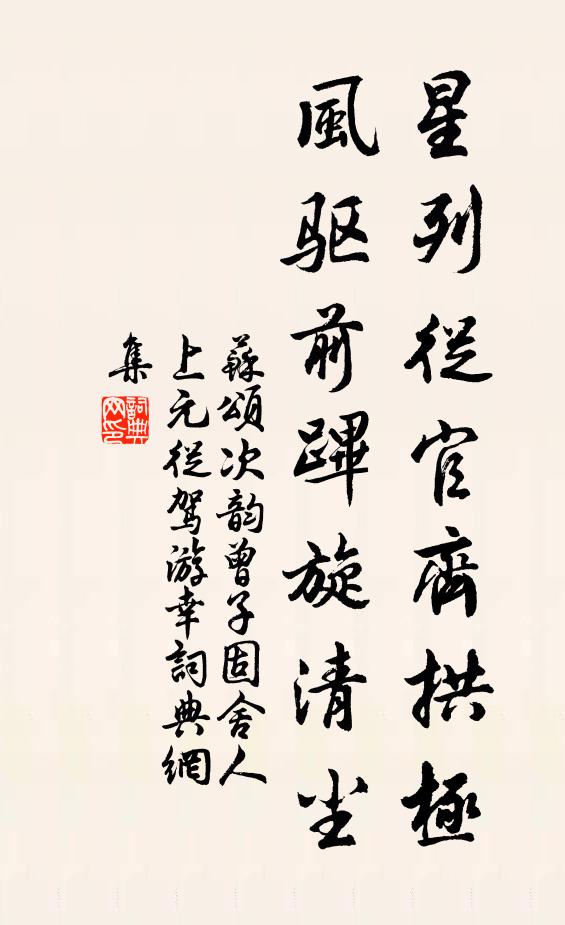 星列從官齊拱極
風驱前蹕旋清尘
蘇頌次韵曾子固舍人
上元從駕游幸詞典網
集
詞典
网印